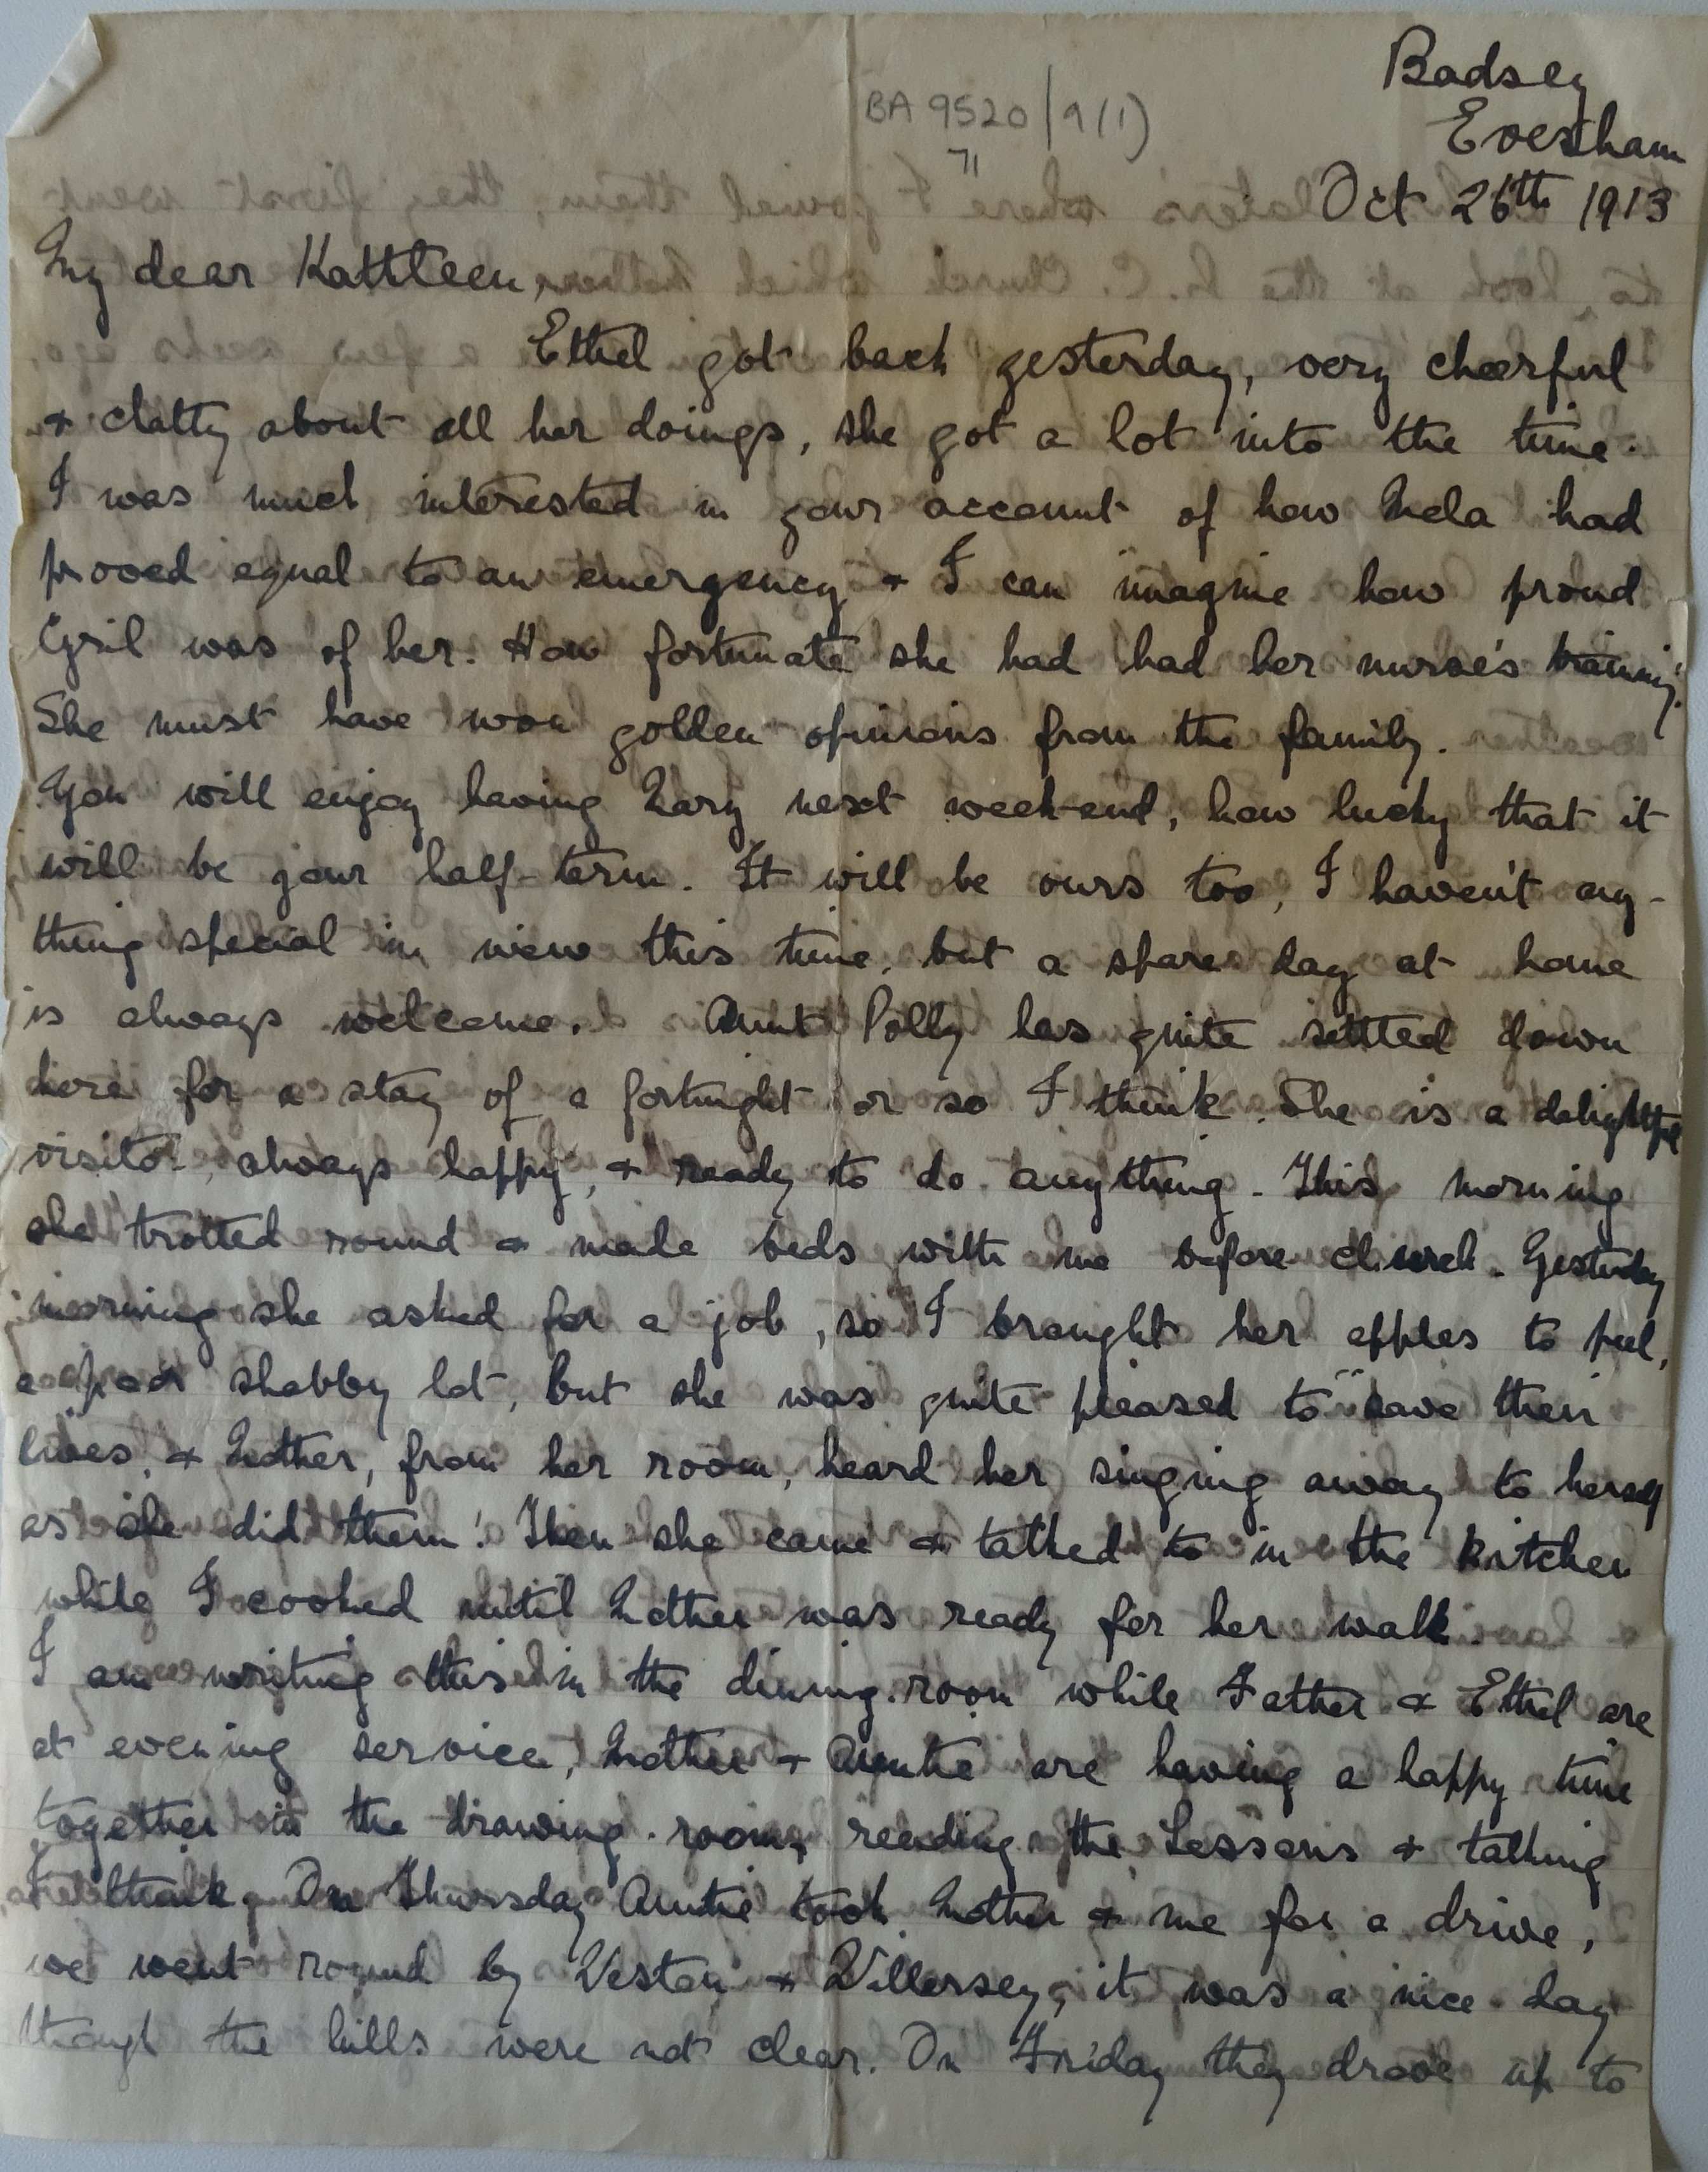 Badsey
Evesham
BA 9520/9(1)
71
Oct 26th 1913
My dear Kathleen,
Ethel got back yesterday, very cheerful
& chatty about all her doings, she got a lot into the time.
I was much interested in your account of how Mela had
proved equal to an emergency & I can imagine how proud
Cyril was of her. How fortunate she had had her nurse's training!
She must have won golden opinions from the family.
You will enjoy having Mary next week-end, how lucky that it
will be your half-term. It will be ours too, I haven't any-
thing special in view this time, but a spare day at home
is always welcome. Aunt Polly has quite settled down
here for a stay of a fortnight or so I think. She is a delightful
visitor, always happy, & ready to do anything. This morning
she trotted round & made beds with me before church. Yesterday
morning she asked for a job, so I brought her apples to peel,
a poor shabby lot, but she was quite pleased to "save their
lives, & Mother, from her room, heard her singing away to herself
as she did them! Then she came & talked to in the kitchen
while I cooked until Mother was ready for her walk.
I am writing this in the dining-room while Father & Ethel are
at evening service, Mother & Auntie are having a happy time
together in the drawing-room, reading the Lessons & talking
I think. On Thursday Auntie took Mother & me for a drive,
we went round by Weston & Willersey, it was a nice day
though the hills were not clear. On Friday they drove up to